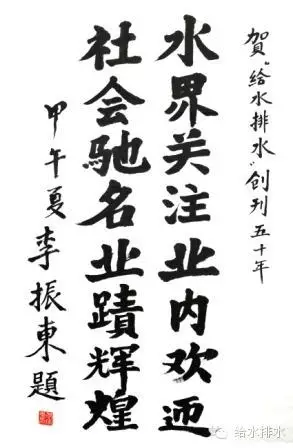 贺“给水排水”创刊五十年
水界关注业内欢迎
社会驰名业蹟辉煌
甲午夏李振東題
给水排水